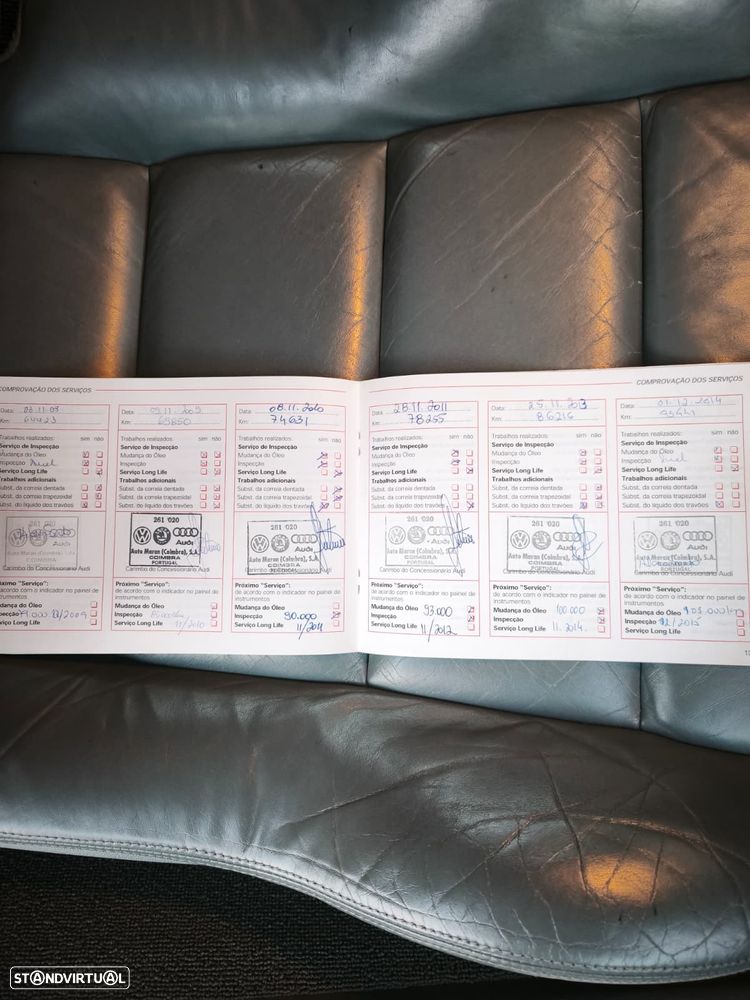 COMPROVAÇÃO DOS SERVIÇOS
Data: 03.11.09
Km:
Trabalhos realizados: sim não
Serviço de Inspecção
Mudança do Óleo
Inspecção
Serviço Long Life
Trabalhos adicionais
Subst. da correia dentada
Subst. da correia trapezoidal
Subst. do líquido dos travões
261 020
Auto Maran (Coimbra), Lda
COIMBRA
Carimbo do Concessionário Audi
Próximo "Serviço":
de acordo com o indicador no painel de
instrumentos
Mudança do Óleo
Inspecção
Serviço Long Life
Data: 09.11.2009
Km: 69850
Trabalhos realizados: sim não
Serviço de Inspecção
Mudança do Óleo
Inspecção
Serviço Long Life
Trabalhos adicionais
Subst. da correia dentada
Subst. da correia trapezoidal
Subst. do líquido dos travões
261 020
Audi
Auto Maran (Coimbra), S.A.
COIMBRA
PORTUGAL
Carimbo do Concessionário Audi
Próximo "Serviço":
de acordo com o indicador no painel de
instrumentos
Mudança do Óleo
Inspecção
Serviço Long Life 11/2010
Data: 08.11.2010
Km: 74631
Trabalhos realizados: sim não
Serviço de Inspecção
Mudança do Óleo
Inspecção
Serviço Long Life
Trabalhos adicionais
Subst. da correia dentada
Subst. da correia trapezoidal
Subst. do líquido dos travões
261 020
Audi
Auto Maran (Coimbra), S.A.
COIMBRA
PORTUGAL
Carimbo do Concessionário Audi
Próximo "Serviço":
de acordo com o indicador no painel de
instrumentos
Mudança do Óleo
Inspecção 90.000
Serviço Long Life 11/2011
COMPROVAÇÃO DOS SERVIÇOS
Data: 28.11.2011
Km: 78255
Trabalhos realizados: sim não
Serviço de Inspecção
Mudança do Óleo
Inspecção
Serviço Long Life
Trabalhos adicionais
Subst. da correia dentada
Subst. da correia trapezoidal
Subst. do líquido dos travões
261 020
Audi
Auto Maran (Coimbra), S.A.
COIMBRA
PORTUGAL
Carimbo do Concessionário Audi
Próximo "Serviço":
de acordo com o indicador no painel de
instrumentos
Mudança do Óleo
Inspecção 93.000
Serviço Long Life 11/2012
Data: 25.11.2013
Km: 86216
Trabalhos realizados: sim não
Serviço de Inspecção
Mudança do Óleo
Inspecção
Serviço Long Life
Trabalhos adicionais
Subst. da correia dentada
Subst. da correia trapezoidal
Subst. do líquido dos travões
261 020
Audi
Auto Maran (Coimbra), S.A.
COIMBRA
PORTUGAL
Carimbo do Concessionário Audi
Próximo "Serviço":
de acordo com o indicador no painel de
instrumentos
Mudança do Óleo 100.000
Inspecção
Serviço Long Life 11.2014
Data: 01.12.2014
Km:
Trabalhos realizados: sim não
Serviço de Inspecção
Mudança do Óleo
Inspecção
Serviço Long Life
Trabalhos adicionais
Subst. da correia dentada
Subst. da correia trapezoidal
Subst. do líquido dos travões
261 020
Audi
Auto Maran (Coimbra), S.A.
COIMBRA
PORTUGAL
Carimbo do Concessionário Audi
Próximo "Serviço":
de acordo com o indicador no painel de
instrumentos
Mudança do Óleo 105.000 km
Inspecção 12/2015
Serviço Long Life
STANDVIRTUAL